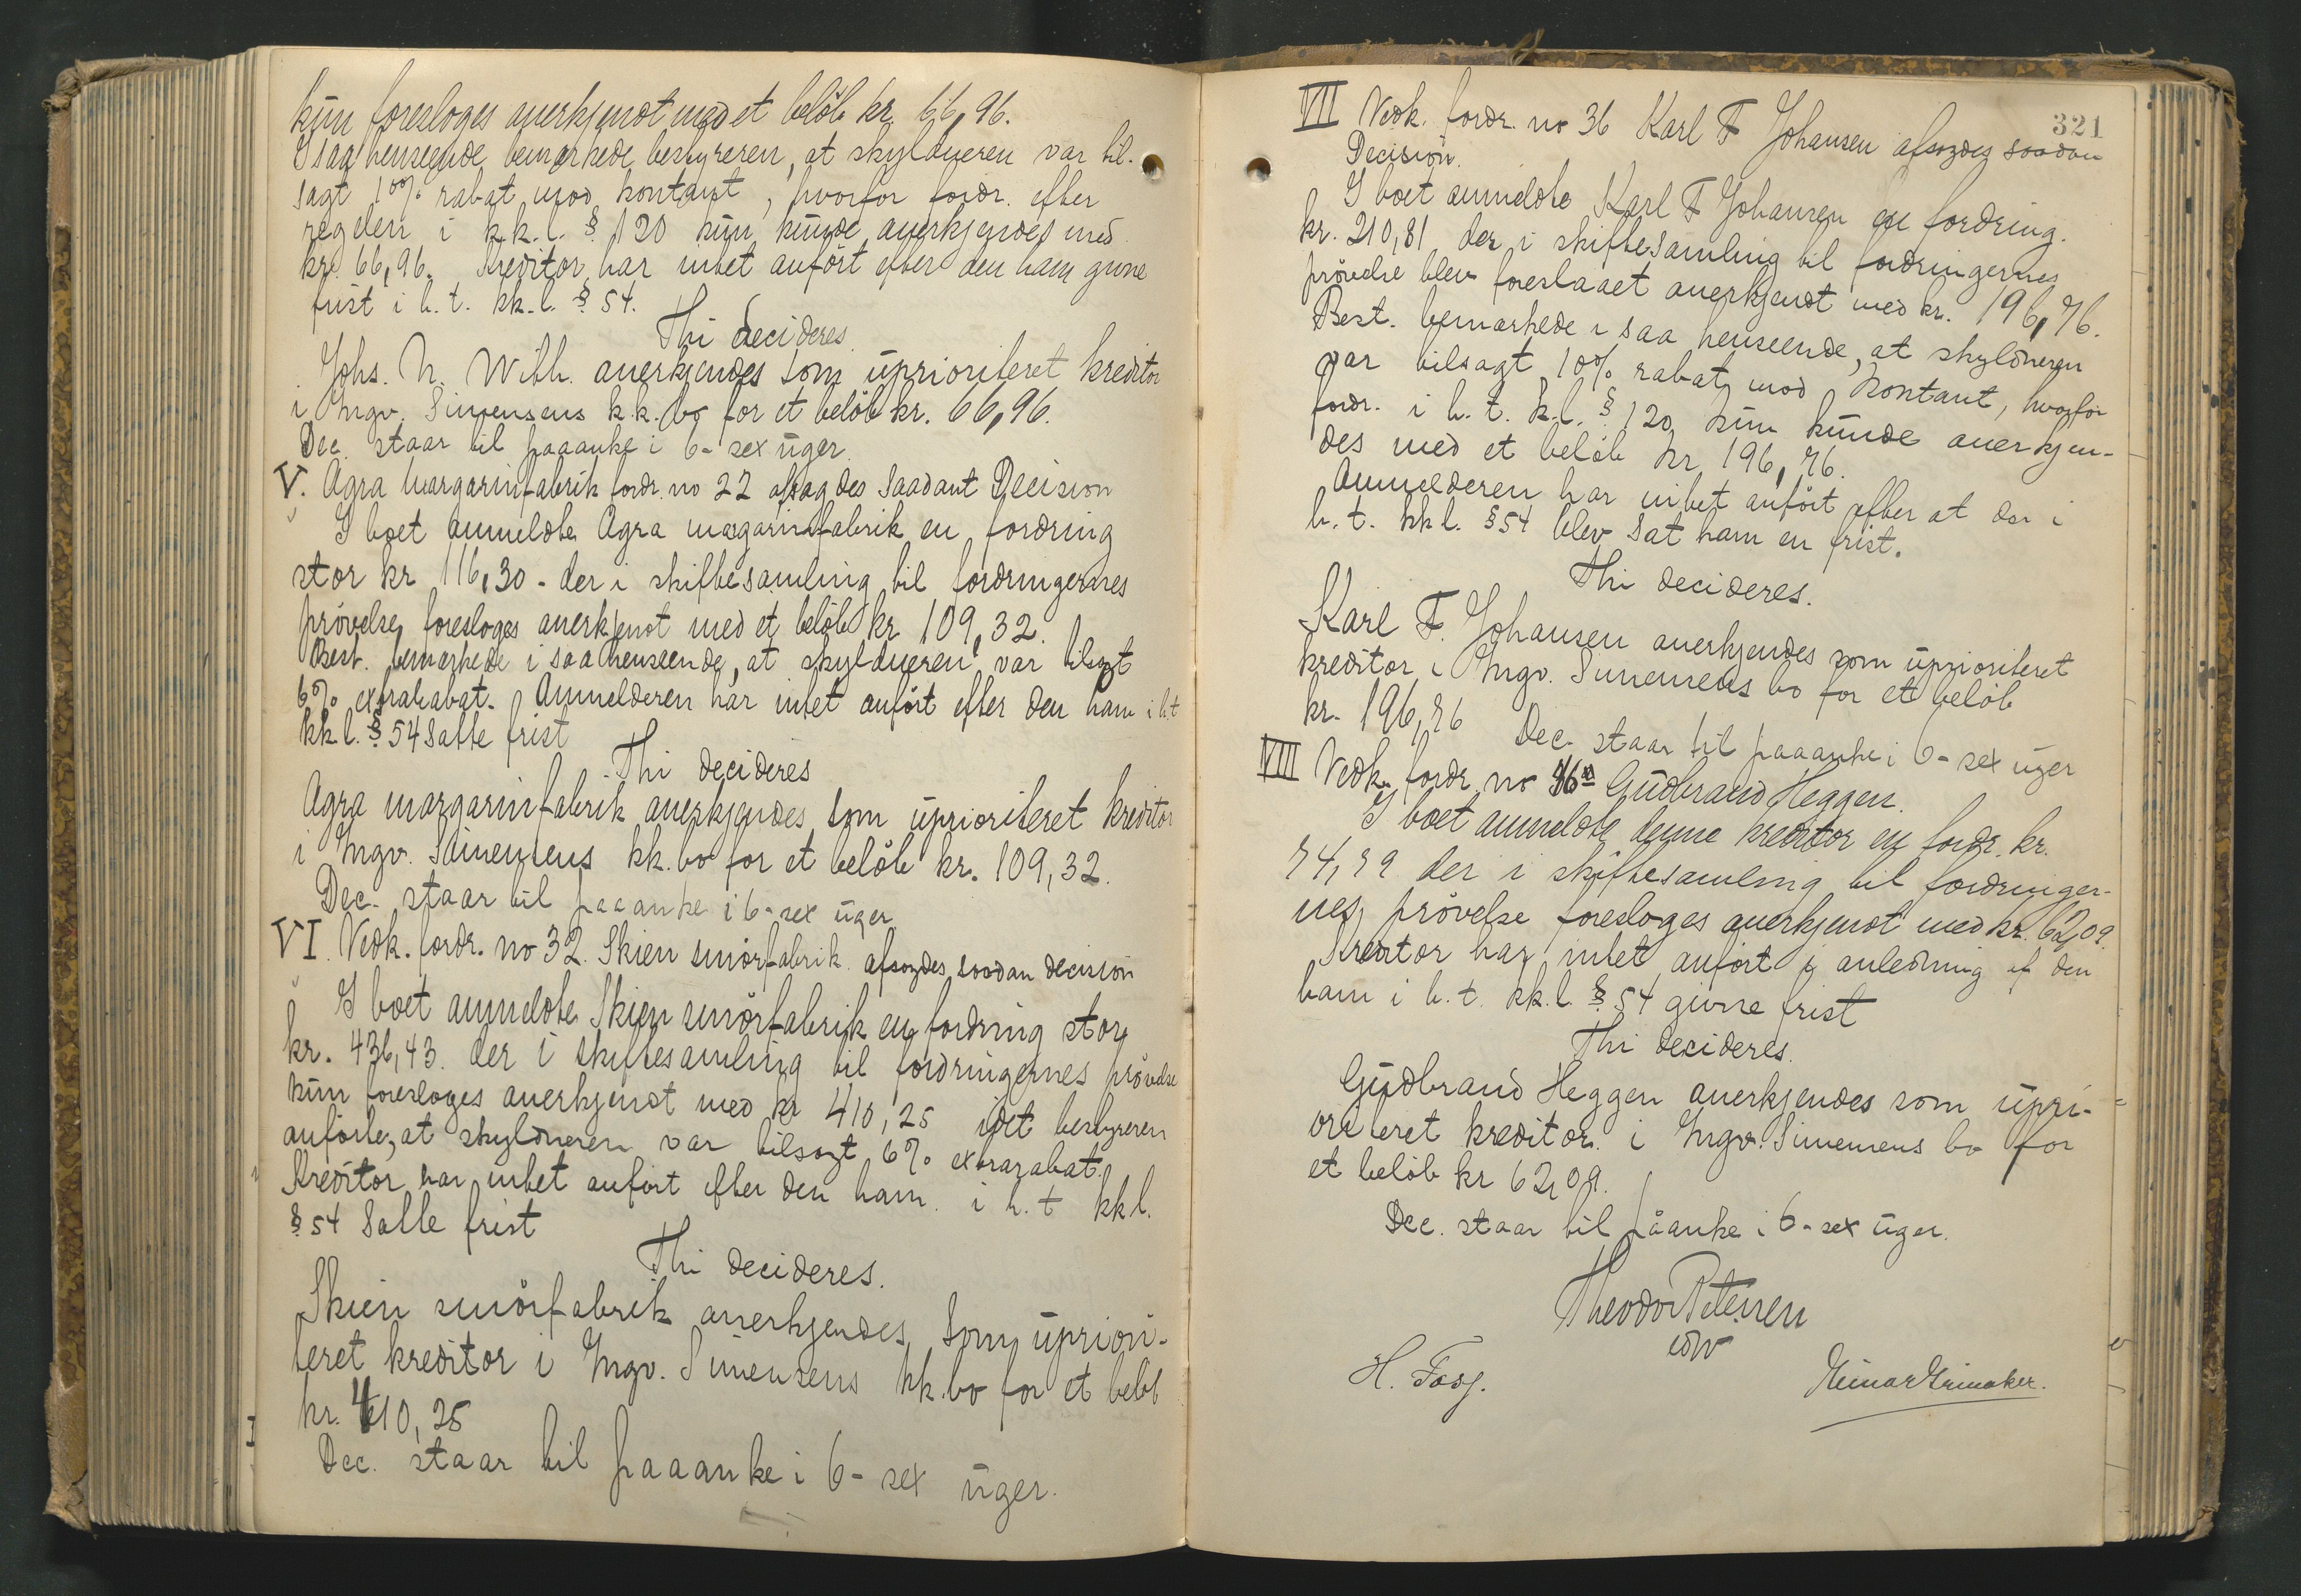 kun foresloges anerkjendt med et beløb kr. 66,96.
I saa henseende bemærkede bestyreren, at skyldneren var til-
sagt 10% rabat mod kontant, hvorfor fordr. efter
reglen i k.k.l. § 120 kun kunde anerkjendes med
kr. 66,96. Kreditor har intet anført efter den ham givne
frist i h.t. kk.l. § 54.
Thi decideres
Johs. N. With. anerkjendes som uprioriteret kreditor
i Ingv. Simensens k.k. bo for et beløb kr. 66,96.
Dec. staar til paaanke i 6- sex uger.
V. Agra margarinfabrik fordr. no 22 afsagdes saadant Decision
I boet anmeldte Agra margarinfabrik en fordring
stor kr 116,30 - der i skiftesamling til fordringernes
prøvelse foresloges anerkjendt med et beløb kr 109,32.
Best. bemærkede i saa henseende, at skyldneren var tilsagt
6% extrarabat. Anmelderen har intet anført efter den ham i h.t
kk l. § 54 satte frist
Thi decideres
Agra margarinfabrik anerkjendes som uprioriteret kreditor
i Ingv. Simensens kk. bo for et beløb kr. 109,32.
Dec. staar til paaanke i 6- sex uger
VI. Vedk. fordr. no 32. Skien smørfabrik afsagdes saadan decision
I boet anmeldte Skien smørfabrik en fordring stor
kr. 436,43. der i skiftesamling til fordringernes prøvelse
kun foresloges anerkjendt med kr 410,25 idet bestyreren
anførte, at skyldneren var tilsagt 6% extrarabat.
Kreditor har intet anført efter den ham i h.t kkl.
§ 54 satte frist
Thi decideres.
Skien smørfabrik anerkjendes som upriori-
teret kreditor i Ingv. Simensens kk. bo for et beløb
kr. 410,25
Dec. staar til paaanke i 6- sex uger.
321
VII Vedk. fordr. no 36 Karl F Johansen afsagdes saadan
Decision.
I boet anmeldte Karl F Johansen en fordring.
kr. 210,81 der i skiftesamling til fordringernes
prøvelse blev foreslaaet anerkjendt med kr. 196,76.
Best. bemærkede i saa henseende, at skyldneren
var tilsagt 10% rabat mod kontant, hvorfor
fordr. i h.t. k.l. § 120 kun kunde anerkjen-
des med et beløb kr 196,76.
Anmelderen har intet anført efter at der i
h.t. kk l. § 54 blev sat ham en frist.
Thi decideres.
Karl F. Johansen anerkjendes som uprioriteret
kreditor i Ingv. Simensens bo for et beløb
kr. 196,76
Dec staar til paaanke i 6- sex uger
VIII Vedk. fordr no Gudbrand Heggen.
I boet anmeldte denne kreditor en fordr. kr.
74,79 der i skiftesamling til fordringer-
nes prøvelse foresloges anerkjendt med kr. 62,09.
Kreditor har intet anført i anledning af den
ham i h.t. kk.l. § 54 givne frist
Thi decideres.
Gudbrand Heggen anerkjendes som upri-
oriteret kreditor i Ingv. Simensens bo for
et beløb kr 62,09.
Dec. staar til påanke i 6- sex uger.
Theodor Petersen
H. Fosg.